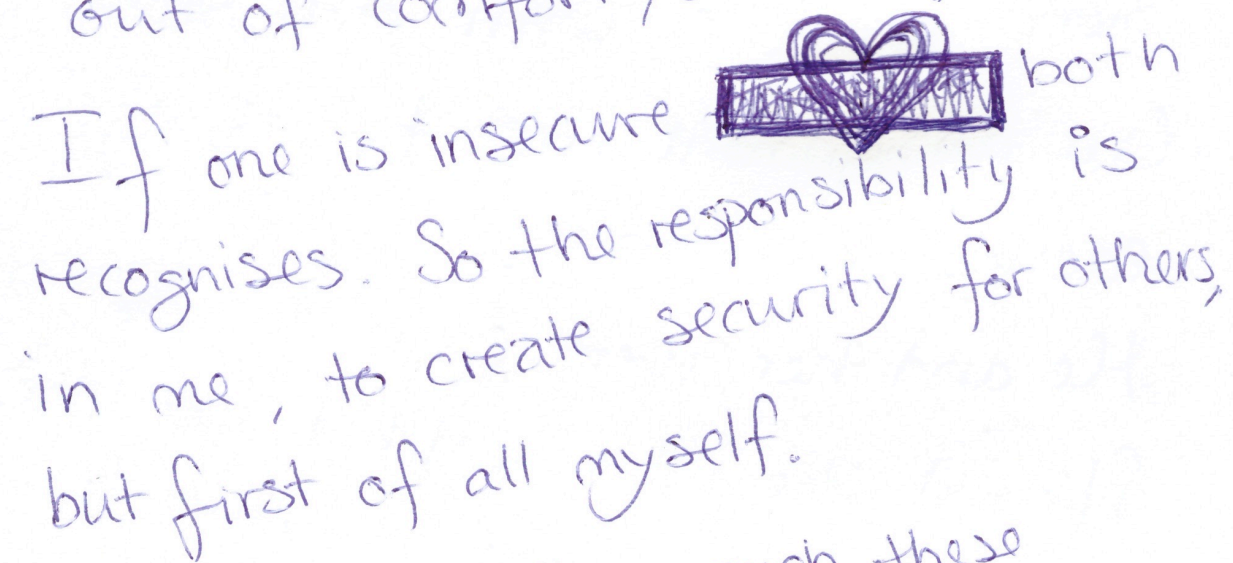 out of comfort,
If one is insecure both
recognises. So the responsibility is
in me, to create security for others,
but first of all myself.
these